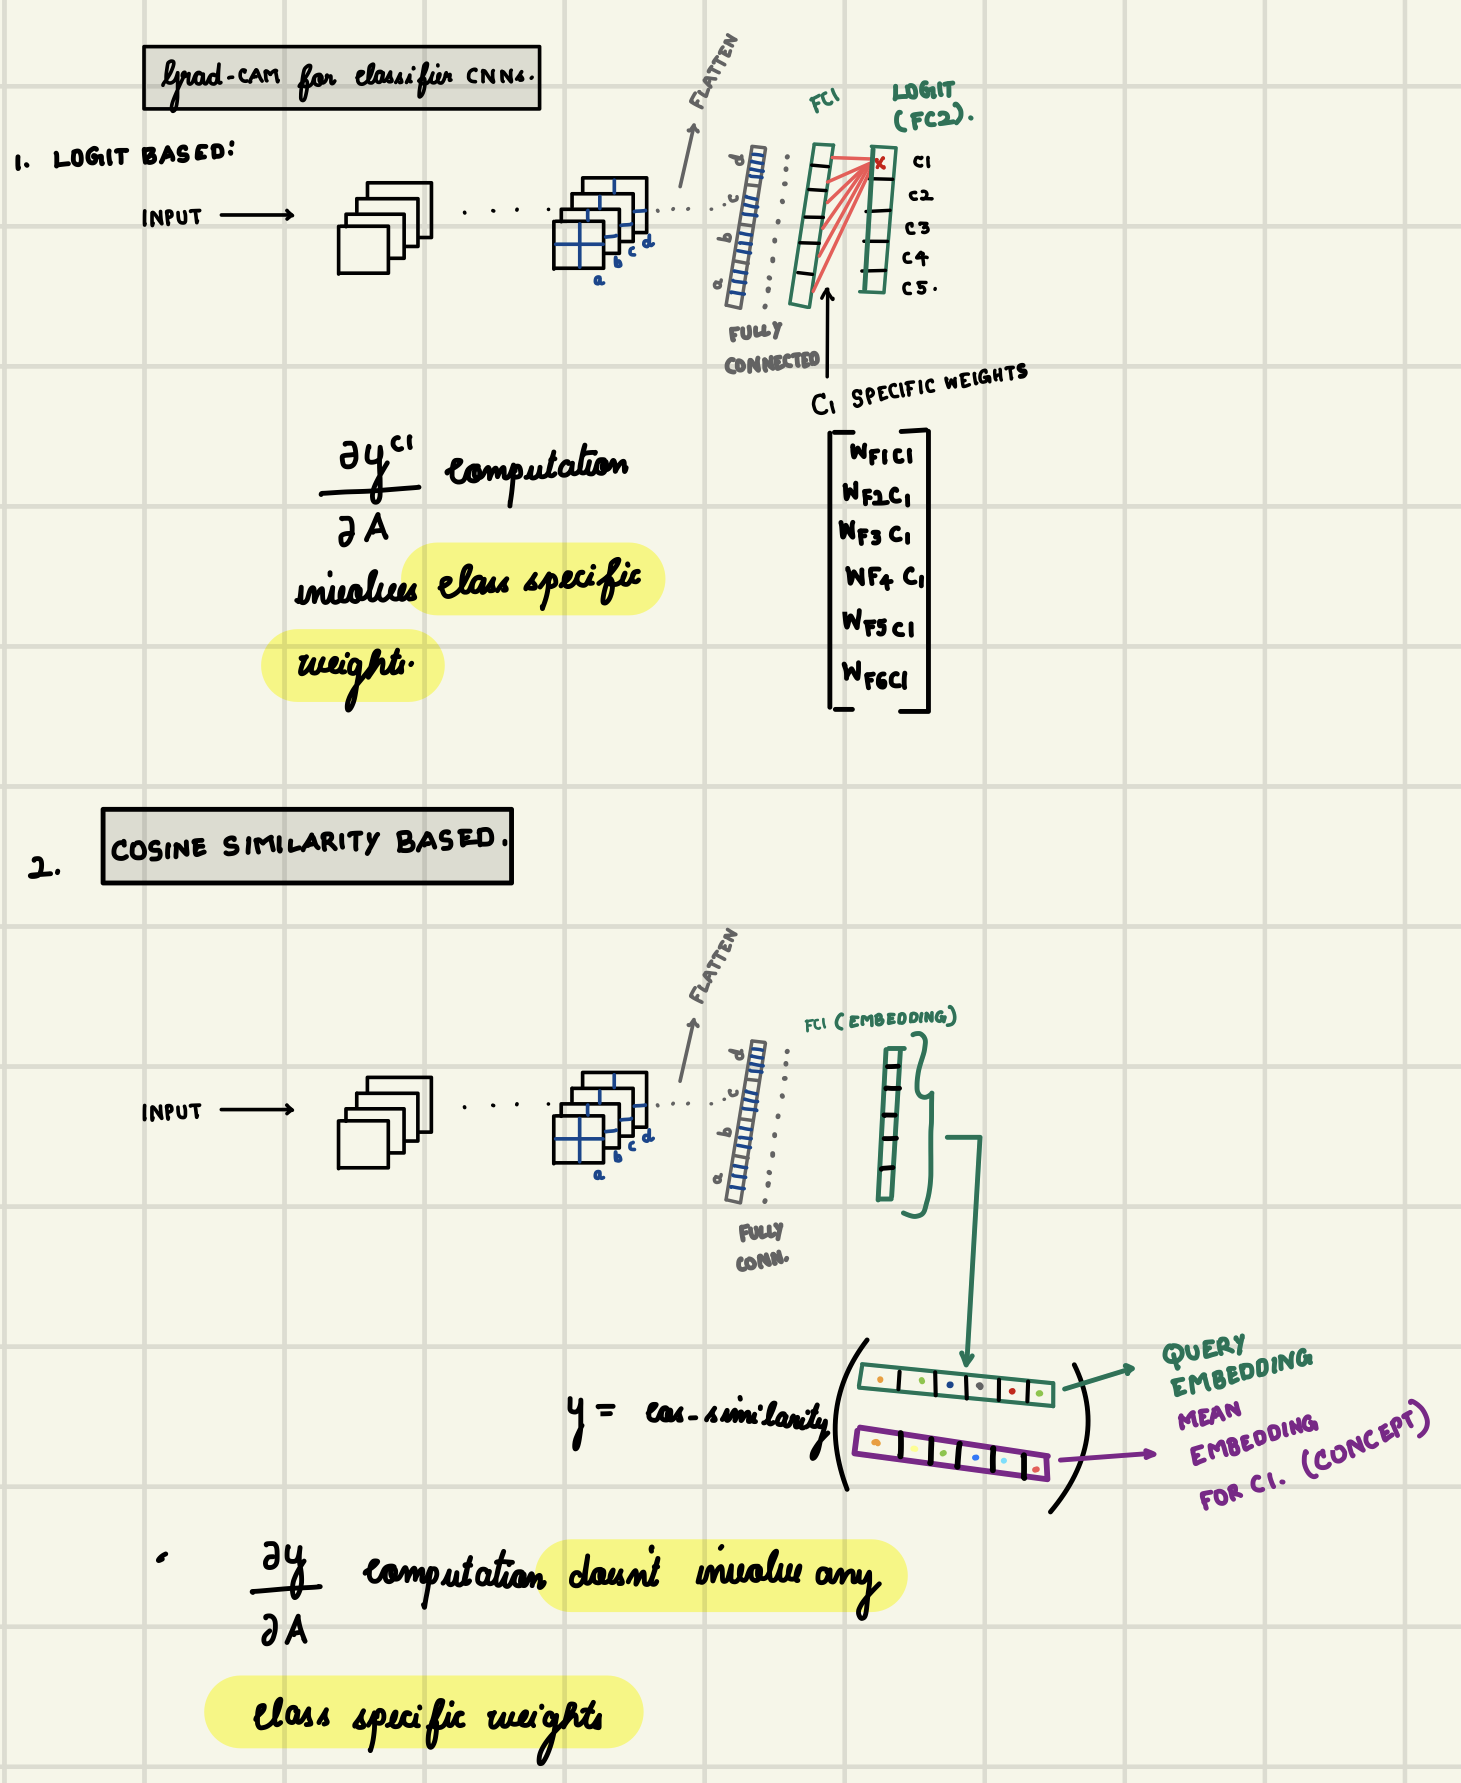 Grad-CAM for classifier CNNs.
1. LOGIT BASED:
INPUT
a
b
c
d
FLATTEN
d
c
b
a
FULLY
CONNECTED
FC1
LOGIT
(FC2).
C1
C2
C3
C4
C5.
C1 SPECIFIC WEIGHTS
WF1C1
WF2C1
WF3C1
WF4C1
WF5C1
WF6C1
∂y^C1 / ∂A computation
involves class specific
weights.
2. COSINE SIMILARITY BASED.
INPUT
a
b
c
d
FLATTEN
d
c
b
a
FULLY
CONN.
FC1 (EMBEDDING)
y = cos-similarity
QUERY
EMBEDDING
MEAN
EMBEDDING
FOR C1. (CONCEPT)
∂y / ∂A computation doesn't involve any
class specific weights